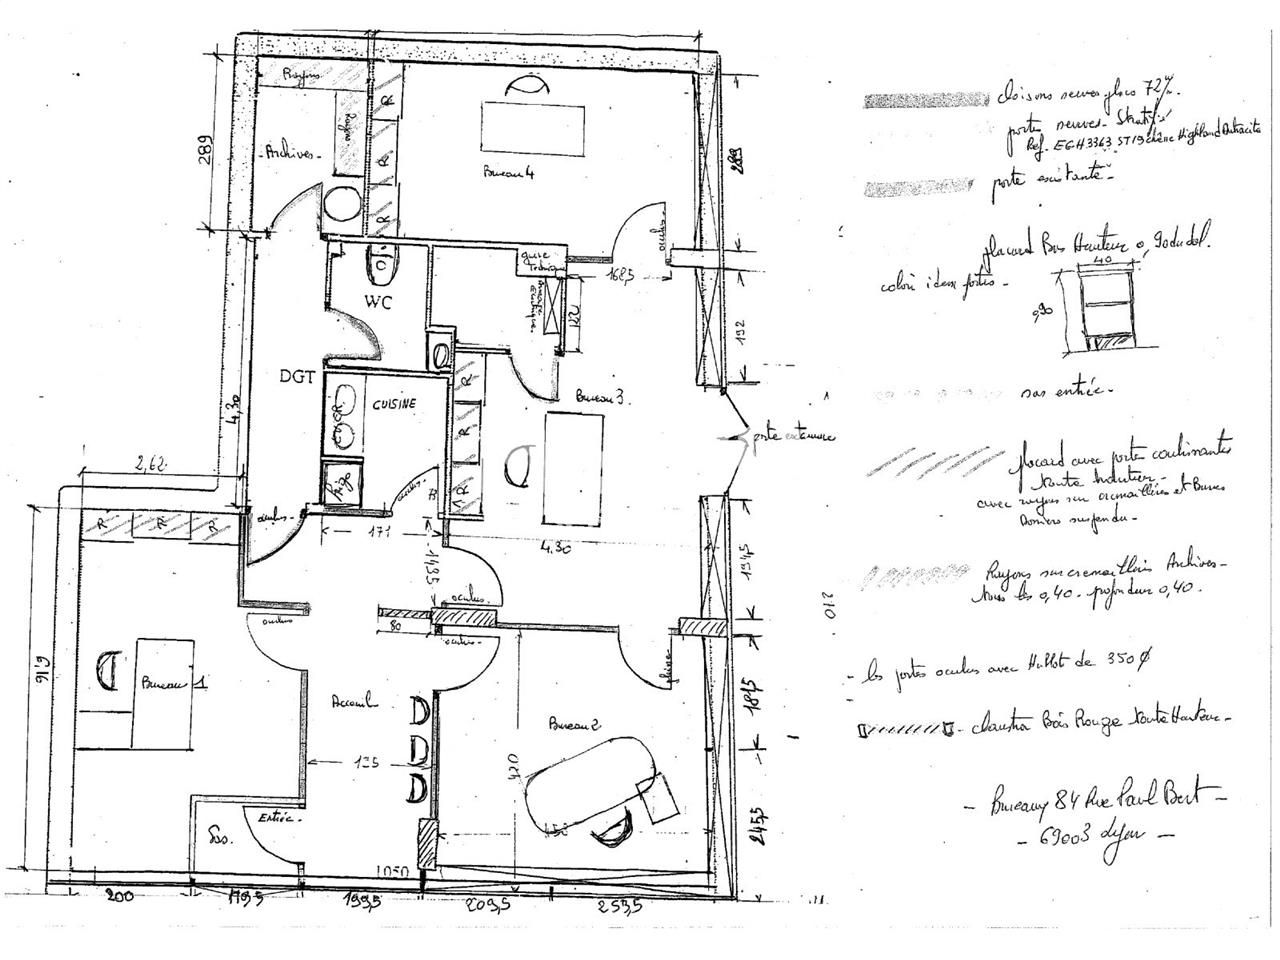 Rayons
Rayons
Archives
289
R
R
R
Bureau 4
oculus
289
168,5
gaine Technique
120
192
WC
DGT
CUISINE
frigo
R
R
R
Bureau 3.
porte exterieure
4,30
2,62
R
R
R
oculus
oculus
171
143,5
4.30
194,5
210
oculus
oculus
80
oculus
pleine
6,16
Bureau 1
Accueil
195
Bureau 2
420
181,5
245,5
Sas.
Entrée
1050
200
179,5
199,5
209,5
253,5
cloisons neuves placo 72
portes neuves - Stratifié
Ref. EGH3363 ST19 chêne Highland
porte existante -
placard Bas Hauteur 0,90
colori idem portes -
40
,90
sas entrée -
placard avec porte coulissantes
toute hauteur -
avec rayons sur cremaillères et
Rayons sur cremaillères Archives -
tous les 0,40. profondeur 0,40.
- les portes oculus avec Hublot de 350 Ø
- claustra Bois Rouge toute Hauteur -
- Bureaux 84 Rue Paul Bert -
- 69003 Lyon -